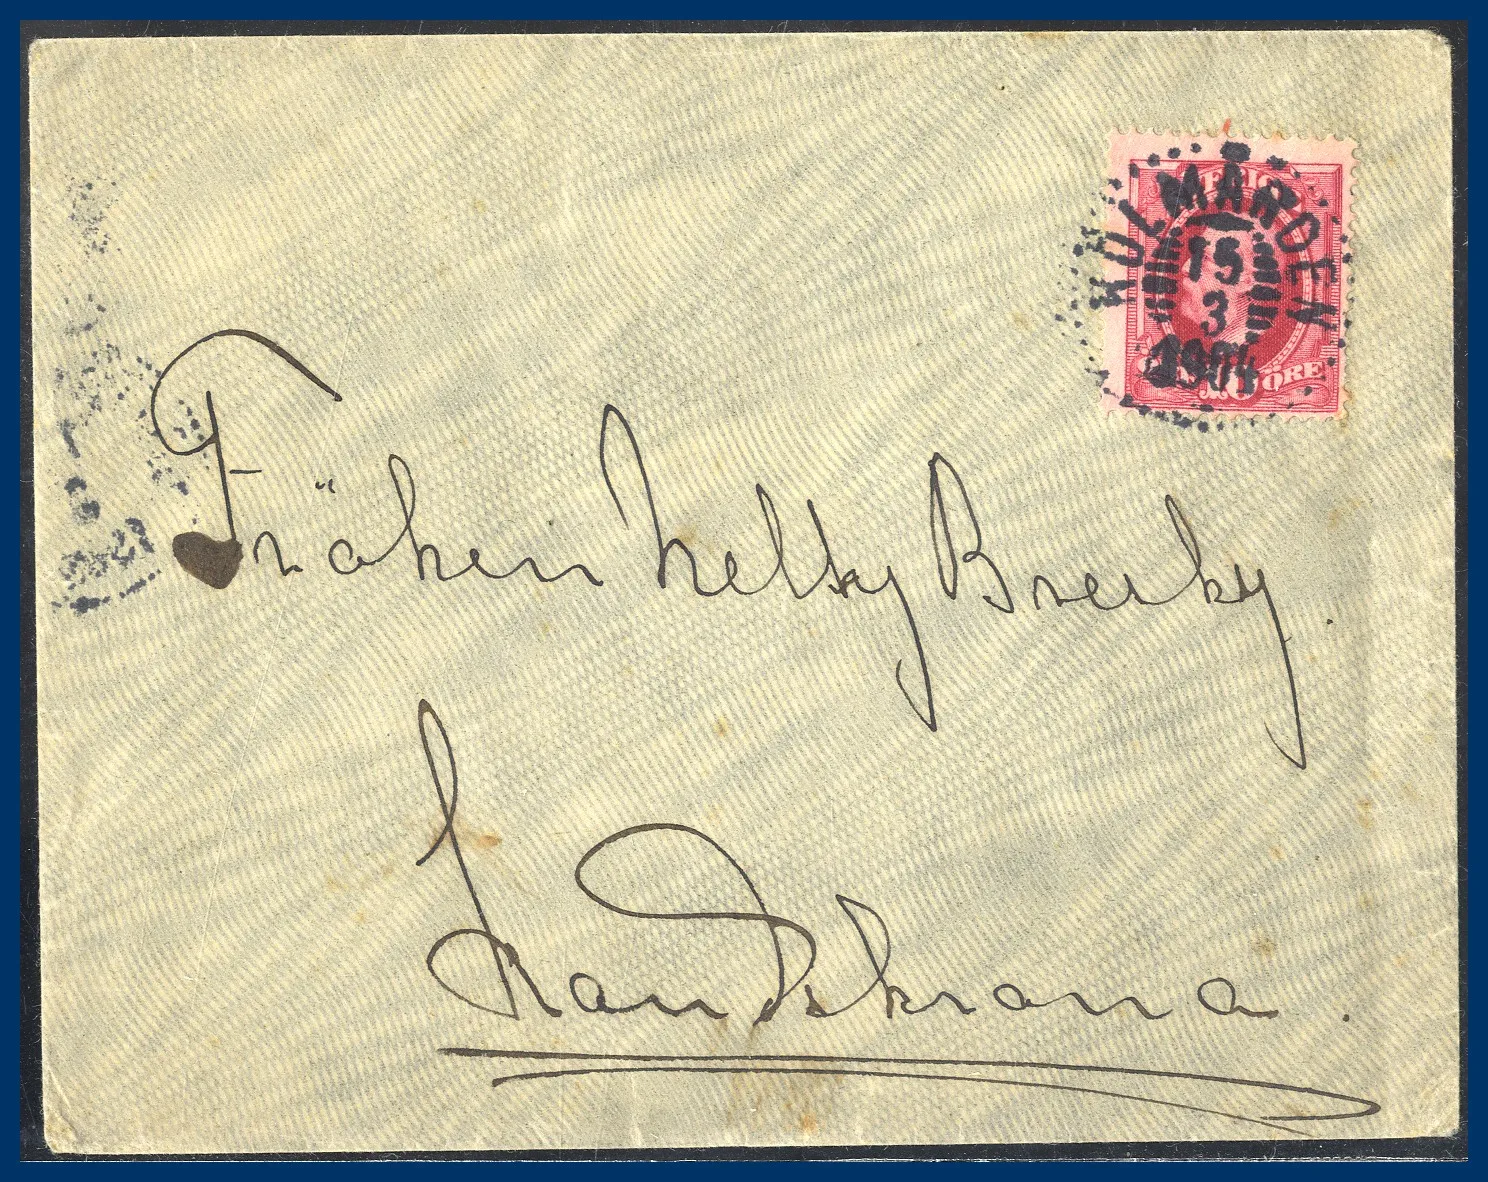 KOLMÅRDEN
15
3
1904
SVERIGE
TIO 10 ÖRE
Fröken Nelly Brerky.
Landskrona.